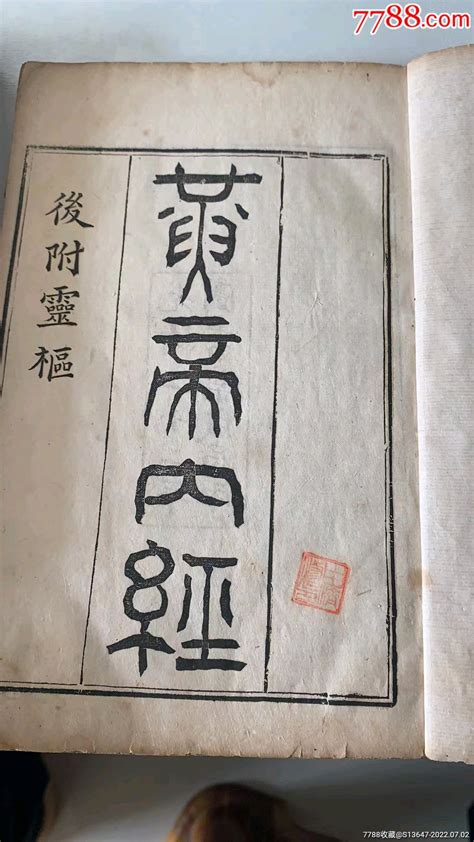 7788.com
黃帝內經
後附靈樞
7788收藏@S13647-2022.07.02